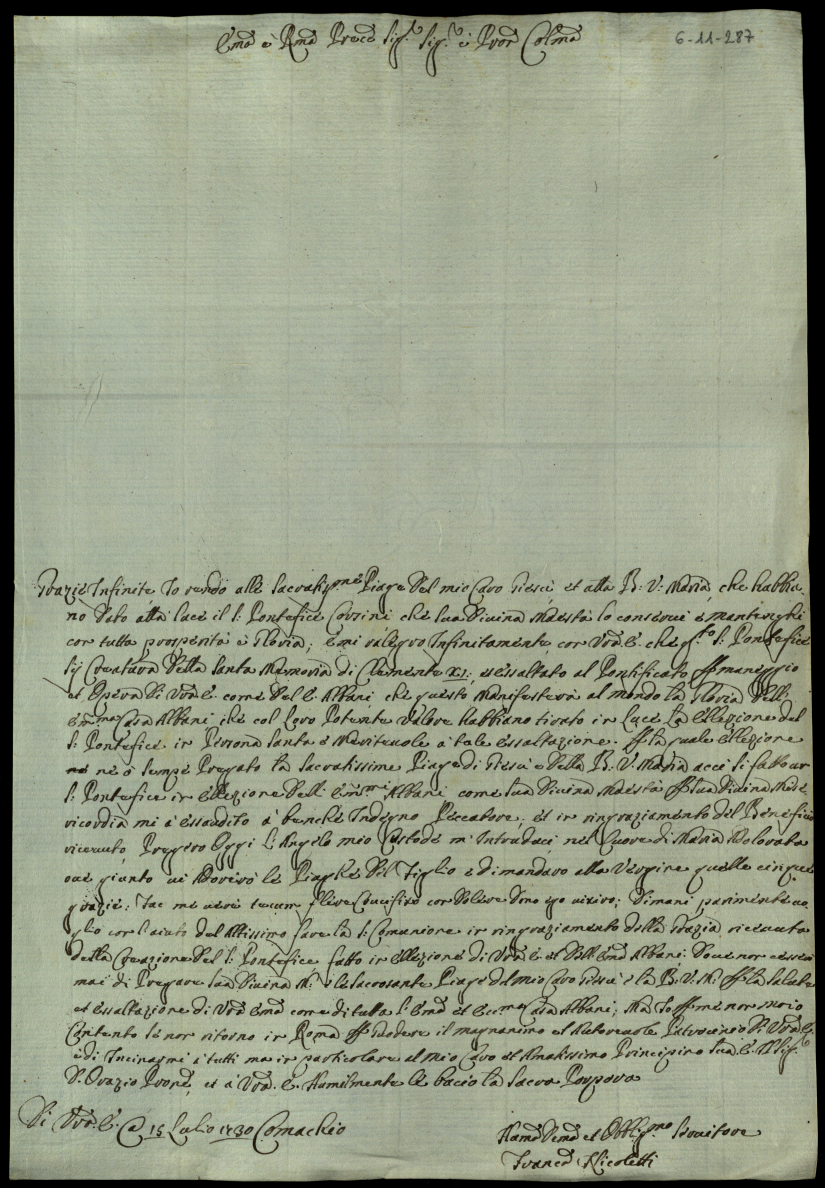 Em̃o è Rmõ Prnce Sig.re Sig.re è Pron Colmõ
6-11-287
Grazie Infinite Io rendo allè Sacratis.me Piage del mio Caro Giesù et alla B: V: Maria, che habbia-
no dato alla lucè il S: Pontefice Corsini chè Sua Divina Maestà lo conservi è mantenghi
con tutta prosperità è Gloria; è mi ralegro Infinitamente con Vrã. E. che q.to S: Pontefice
sij Creatura della Santa Memoria di Clemente XI: è essaltato al Pontificato p maneggio
et Opera di Vrã E. comè del E. Albani chè questo Manifesterà al mondo la Gloria dell:
Em.ma Casa Albani chè col Loro Potente Valore habbiano tirato in lucè la Ellezione del
S: Pontefice in Persona Santa è Meritevole à tale Essaltazione. p la quale Ellezione
nè ò sempè Pregato la Sacratissime Piage di Giesù è della B: V: Maria acciò si fatto un
S: Pontefice in Ellezione dell' Em.mi Albani comè Sua Divina Maestà p sua Divina Mise-
ricordia mi à essaudito à benchè Indegno Peccatore, et in ringraziamento del Beneficio
riceuuto, Pregerò Oggi L'Angelo mio Custode m' Introduci nel Cuore di Maria Adolorata
oue giunto ui Adorerò lè Piaghè del Figlio è dimandarò alla Vergine quelle cinque
grazie: Fac me uerè tecum flere Crucifixo condolere donec ego uixero; Dimani parimentè uo-
glio con l'aiuto del Altissimo fare la S: Comunione in ringraziamento della Grazia riceuuta
della Creazione del S: Pontefice fatto in Ellezione di Vrã E. et dell Emõ Albani. Doue non cesserò
mai di Pregare Sua Diuina M: è le Sacrosante Piage del mio Caro Giesù è la B: V: M: p la Salute
et Essaltazione di Vrã Emã come di tutta l' Emã et Ecc.ma Casa Albani; Ma Io p me non moio
Contento sè non ritorno in Roma p Godere il magnanimo et Autoreuole Patrocinio di Vrã E.
è di Inchinarmi à tutti ma in particolare al mio Caro et Amatissimo Principino Sua E. Il Sig.re
D. Orazio Pronè, et à Vrã. E. Humilmente lè bacio la Sacra Porpora
Di Vrã. E. @ 15 Luglio 1730 Comachio
Hum.o Deu.o et Obbli.mo Seruitore
Franc.o Nicoletti